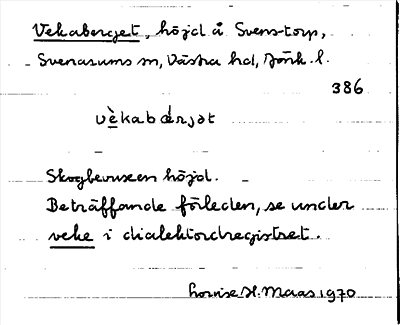 Vekaberget, höjd å Svenstorp,
Svenarums sn, Västra hd, Jönk. l.
386
vὲkabǽrjət
Skogbevuxen höjd.
Beträffande förleden, se under
veke i dialektordregistret.
Louise H. Maas 1970